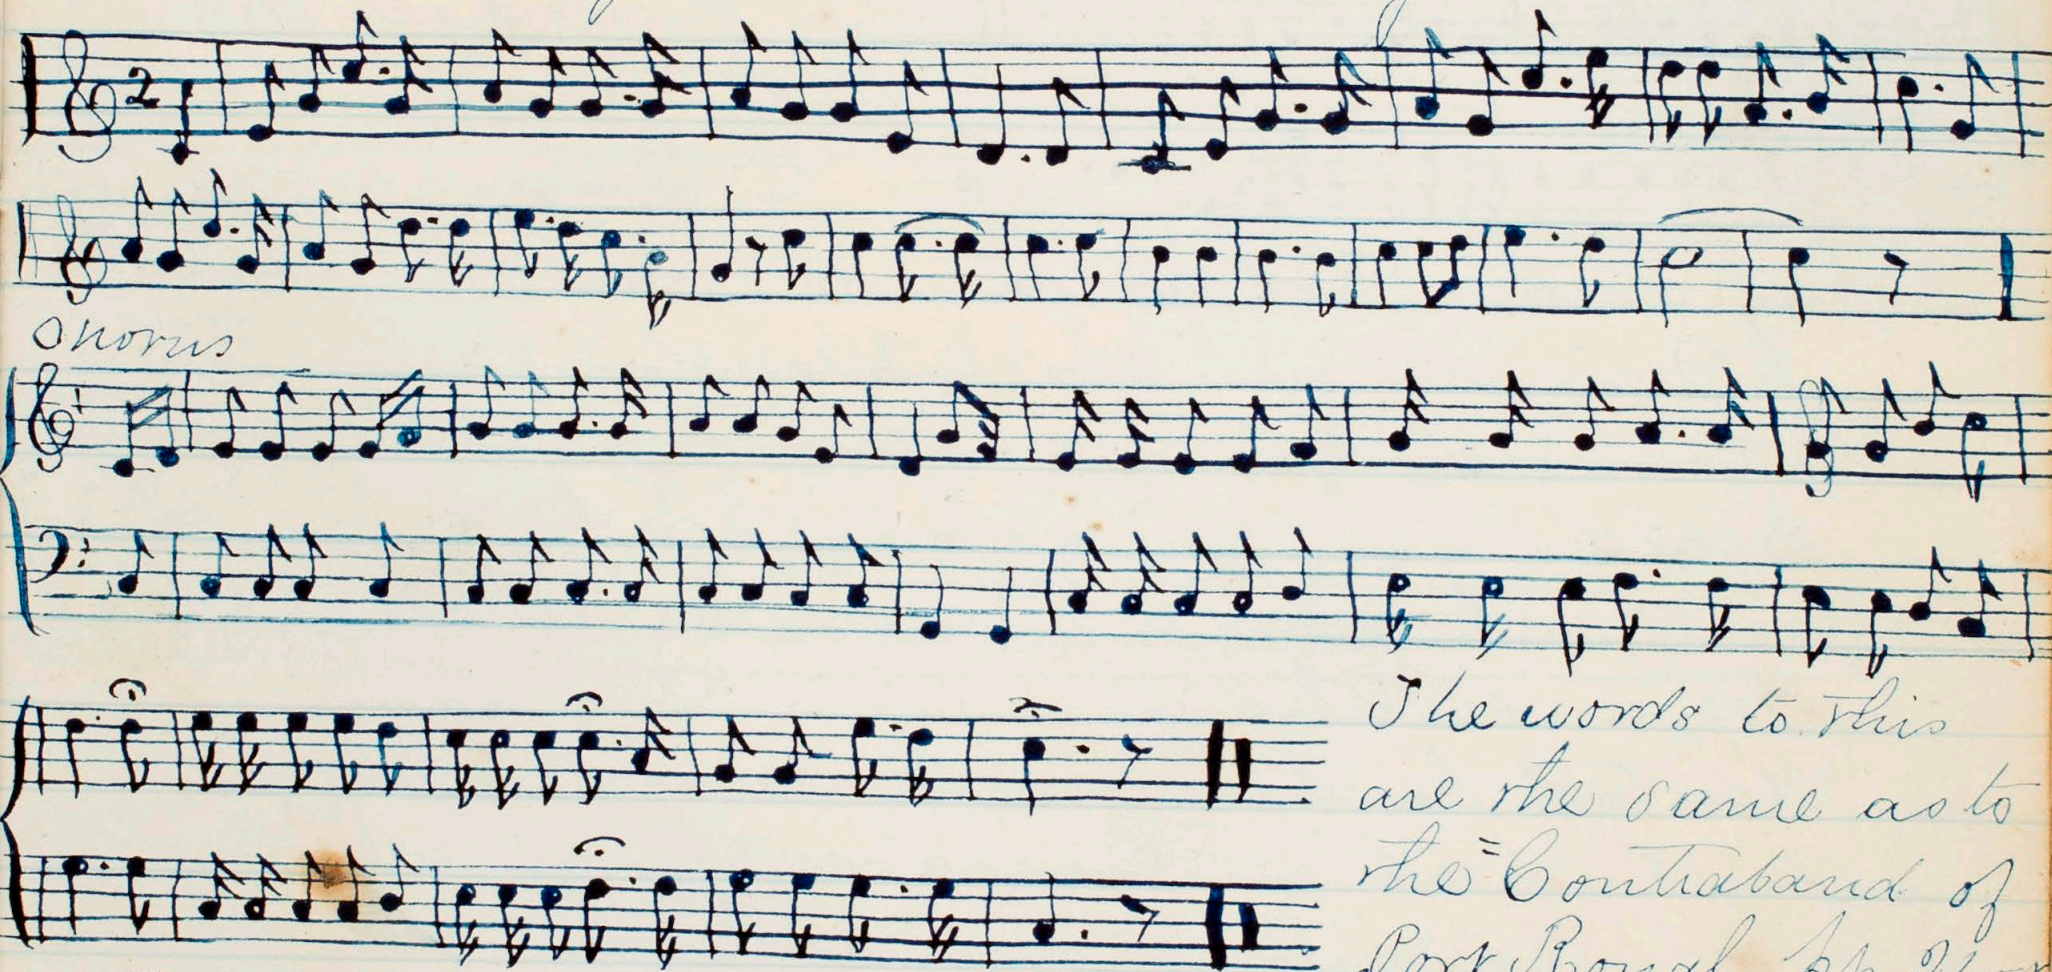 2
Chorus
The words to this
are the same as to
the "Contraband of
Port Royal